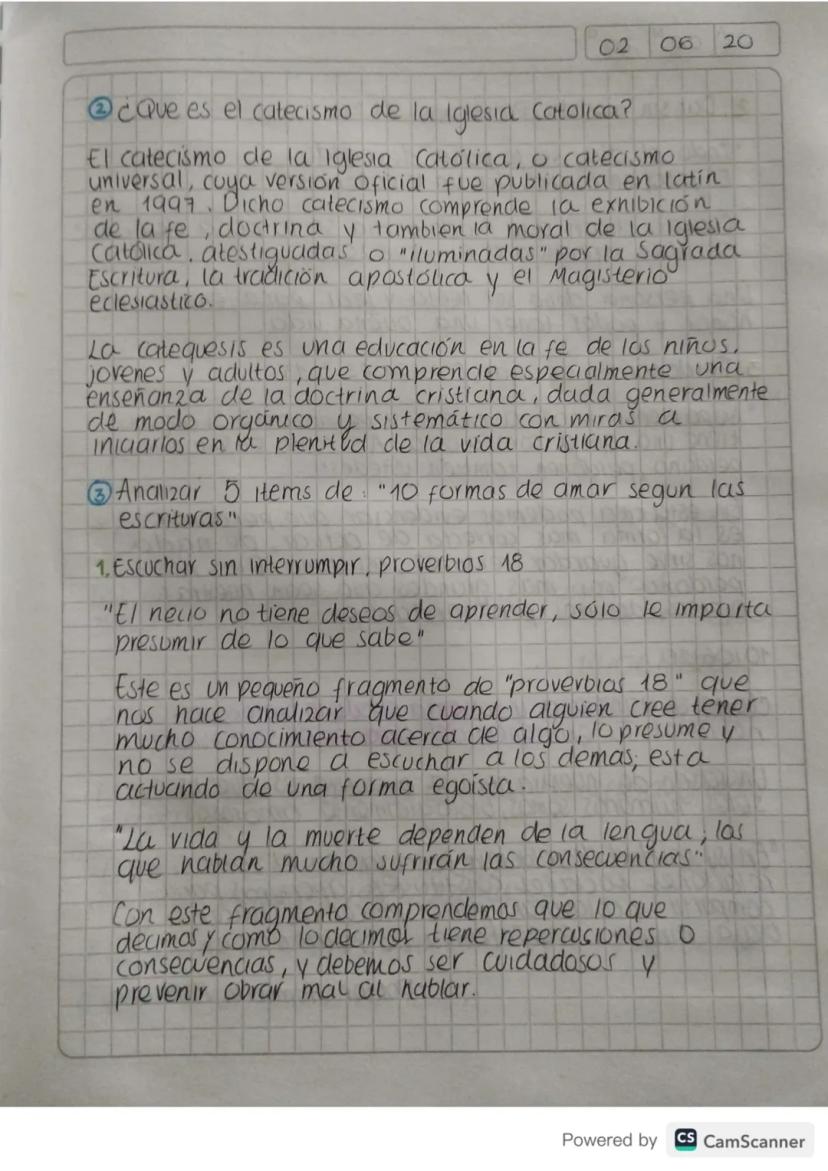 02 06 20
② ¿Que es el catecismo de la Iglesia Catolica?
El catecismo de la Iglesia Católica, o catecismo
universal, cuya versión oficial fue publicada en latín
en 1997. Dicho catecismo comprende la exhibición
de la fe, doctrina y tambien la moral de la Iglesia
Católica, atestiguadas o "iluminadas" por la Sagrada
Escritura, la tradición apostólica y el Magisterio
eclesiastico.
La catequesis es una educación en la fe de los niños,
jovenes y adultos, que comprende especialmente una
enseñanza de la doctrina cristiana, dada generalmente
de modo orgánico y sistemático con miras a
iniciarlos en la plenitud de la vida cristiana.
③ Analizar 5 items de: "10 formas de amar segun las
escrituras"
1. Escuchar sin interrumpir, proverbios 18
"El necio no tiene deseos de aprender, sólo le importa
presumir de lo que sabe"
Este es un pequeño fragmento de "proverbios 18" que
nos hace analizar que cuando alguien cree tener
mucho conocimiento acerca de algo, lo presume y
no se dispone a escuchar a los demas, esta
actuando de una forma egoísta.
"La vida y la muerte dependen de la lengua; los
que hablan mucho sufrirán las consecuencias"
Con este fragmento comprendemos que lo que
decimos y como lo decimos tiene repercusiones o
consecuencias, y debemos ser cuidadosos y
prevenir obrar mal al hablar.
Powered by CS CamScanner